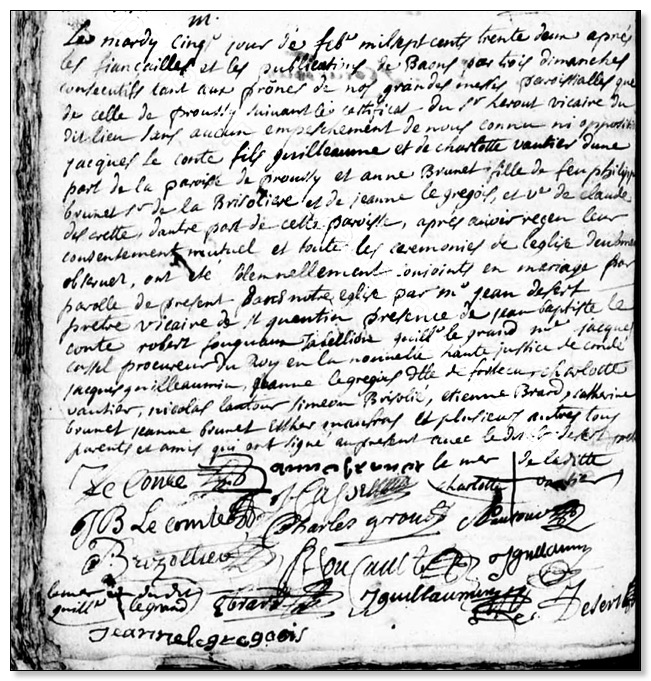 m.
Le mardy cinqe jour de febr mil sept cents trente deux après
les fiançailles et les publications de Bans par trois dimanches
consecutifs tant aux prônes de nos grandes messes paroissialles que
de celle de proussy suivant le certificat du Sr herout vicaire du
dit lieu sans aucun empeschement de nous connu ni opposition
jacques le conte fils guilleaume et de charlotte vautier d'une
part de la paroisse de proussy et anne Brunet fille de feu philippe
brunet sr de la Brisoliere et de jeanne le gregois, et ve de claude
descrette, d'autre part de cette paroisse, après avoir reçeu leur
consentement mutuel et toute les ceremonies de l'eglise deument
observez, ont été solemnellement conjoints en mariage par
parolle de present dans notre eglise par me jean desert
prêtre vicaire de st quentin presence de jean baptiste le
conte robert fouquaux tabellion guille le grand me jacques
cassel procureur du Roy en la nouvelle haute justice de condé
jacques guilleaumin, jeanne le gregois charlotte
vautier, nicolas lautour simeon Brisolié, etienne Brard, catherine
brunet jeanne brunet Esther maufras et plusieurs autres tous
parents et amis qui ont signé au present avec le dit sr desert
Le Conte anne brunet le mer de la ditte
charlotte vautier
JB Le comte Charles
Brizollier Jguillaumin
le mer du dit
guille le grand EBrard Jguillaumin Desert
Jeanne le gregois